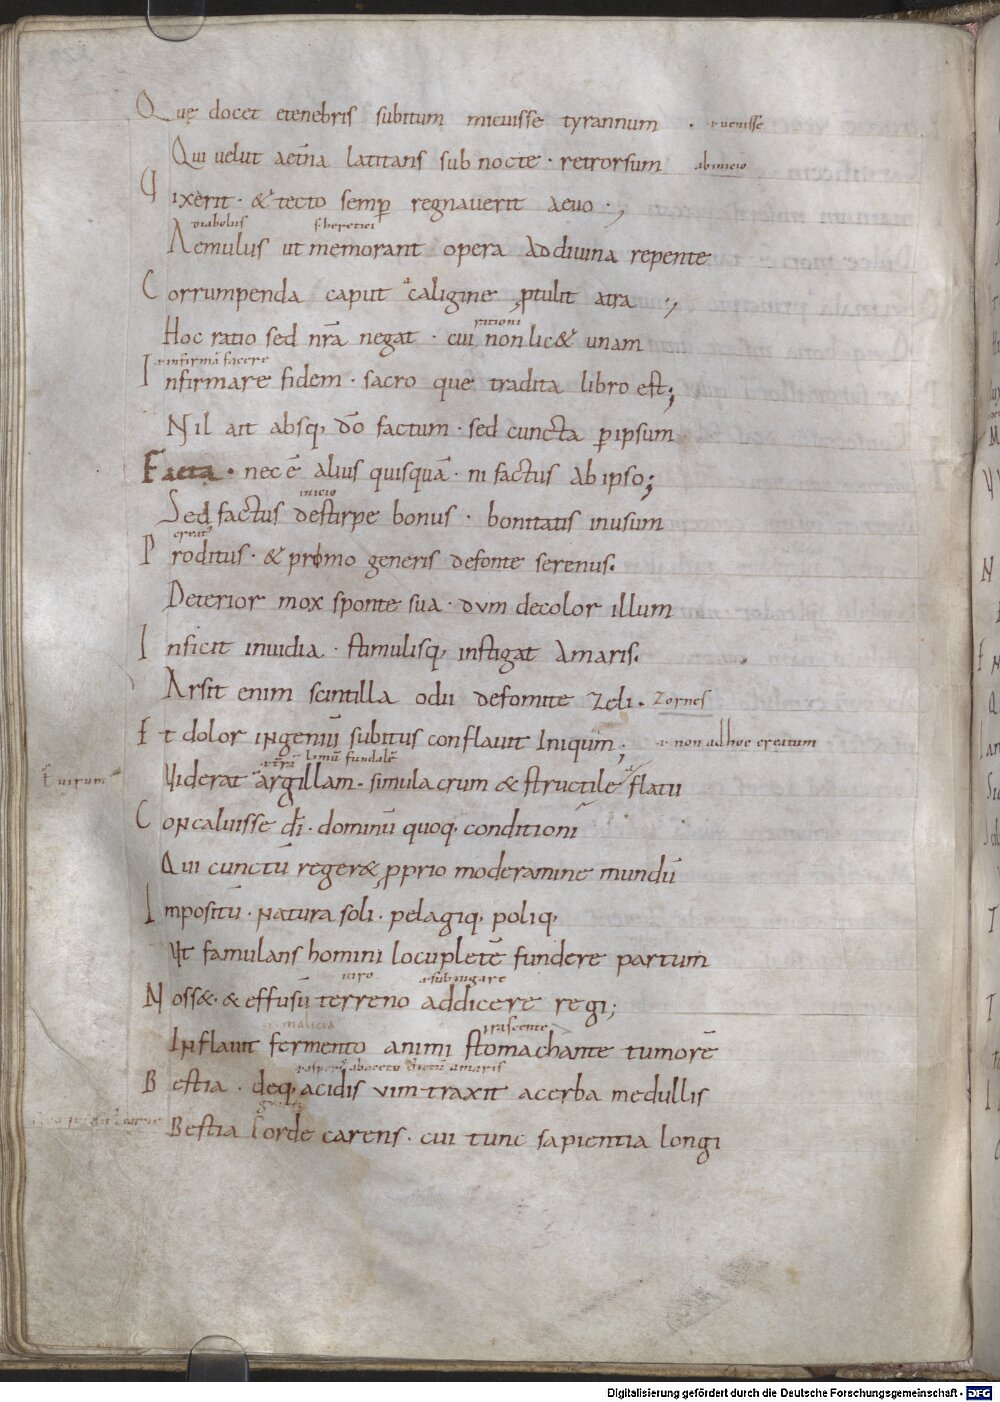 Quę docet etenebris subitum micuisse tyrannum · ɫ uenisse
Qui uelut aetna latitans sub nocte · retrorsum ab inicio
Vixerit · & tecto semꝑ regnauerit aeuo ·,
diabolus s. heretici
Aemulus ut memorant opera ad diuina repente
Corrumpenda caput caligine ꝓtulit atra ·,
Hoc ratio sed nr̄a negat · cui non lic& unam
rationi
ɫ infirmā facere
Infirmare fidem · sacro que tradita libro est;
Nil ait absq, dō factum · sed cuncta ꝑ ipsum
Facta · nec ē alius quisquā · ni factus ab ipso;
inicio
Sed factus de stirpe bonus · bonitatis in usum
Proditus · & primo generis de fonte serenus.
Deterior mox sponte sua · dum decolor illum
Inficit inuidia · stimulisq, instigat amaris.
Arsit enim scintilla odii de fomite zeli · zornes
Et dolor ingeniū subitus conflauit iniqum; ɫ non ad hoc creatum
limū
Viderat argillam · simulacrum & structile flatu
Concaluisse dī · dominū quoq, conditioni
Qui cunctū reger& ꝓprio moderamine mundū
Impositū · natura soli · pelagiq, poliq,
Vt famulans homini locupletē fundere partum
uiro ɫ subiugare
Noss& · & effusū terreno addicere regi;
ɫ malicia irascente
Inflauit fermento animi stomachante tumorē
Bestia · deq, acidis uim traxit acerba medullis
Bestia sorde carens · cui tunc sapientia longi
Digitalisierung gefördert durch die Deutsche Forschungsgemeinschaft - DFG